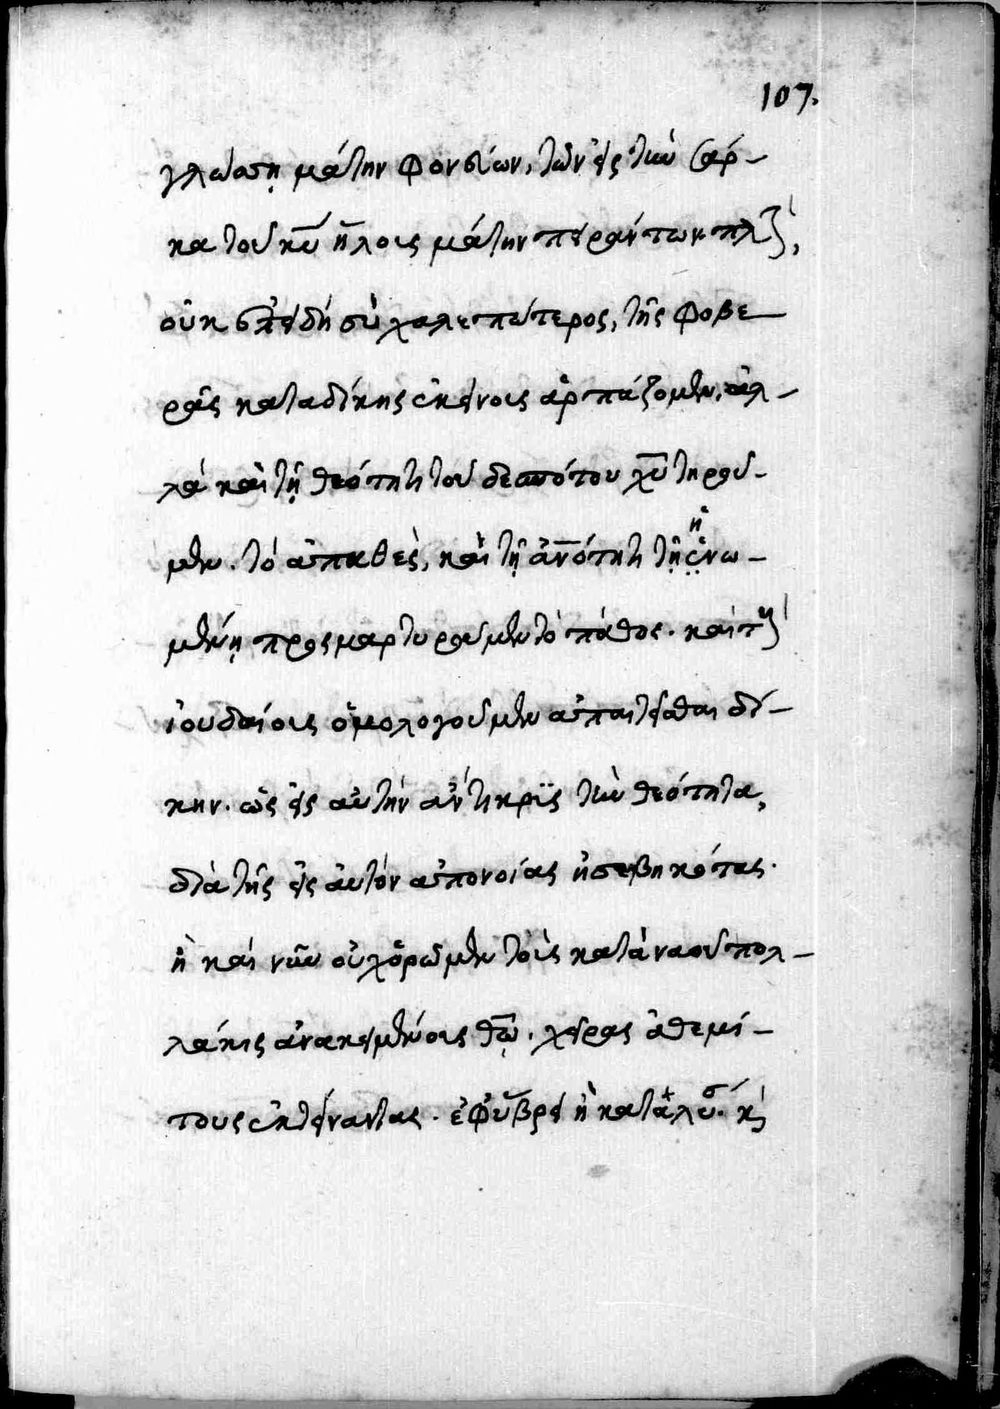 107.
γλώσσῃ μάτην φονευόντων, τῶν εἰς τὴν σάρ-
κα τοῦ κυ ἥλοις μάτην πειράντων
οὐκ ἐπειδὴ σὺ χαλεπώτερος, τῆς φοβε
ρᾶς καταδίκης ἐκείνοις ἁρπάζομεν, ἀλ-
λὰ καὶ τῇ θεότητι τοῦ δεσπότου χυ τηροῦ-
μεν. τὸ ἀπαθὲς, καὶ τῇ ἀνότητι τῇ ἑνω-
μένῃ προςμαρτυροῦμεν τὸ πάθος. καὶ
ἰουδαίοις ὁμολογοῦμεν ἀπαιτεῖσθαι δί-
κην. ὡς εἰς αὐτὴν ἀντικρὺς τὴν θεότητα,
διὰ τῆς εἰς αὐτὸν ἀπονοίας ἠσεβηκότας.
ἢ καὶ νῦν οὐχ ὁρῶμεν τοῖς κατὰ ναοῦ πολ-
λάκις ἀνακειμένοις θω. χεῖρας ἀθεμί-
τους ἐκτείναντας. ἐφ' ὕβρει ἢ καταλύσ. κ